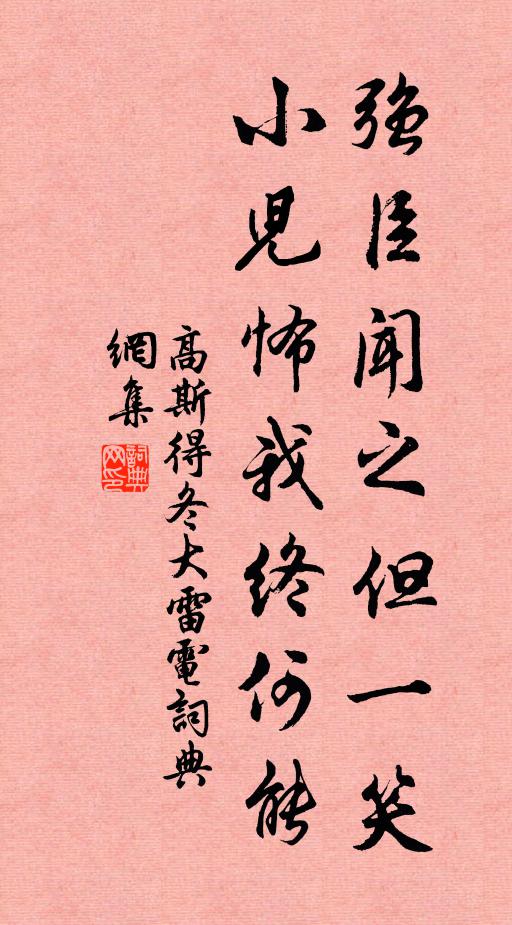 強臣闻之但一笑
小兒怖我終何能
高斯得冬大雷電詞典
網集
詞典
网印